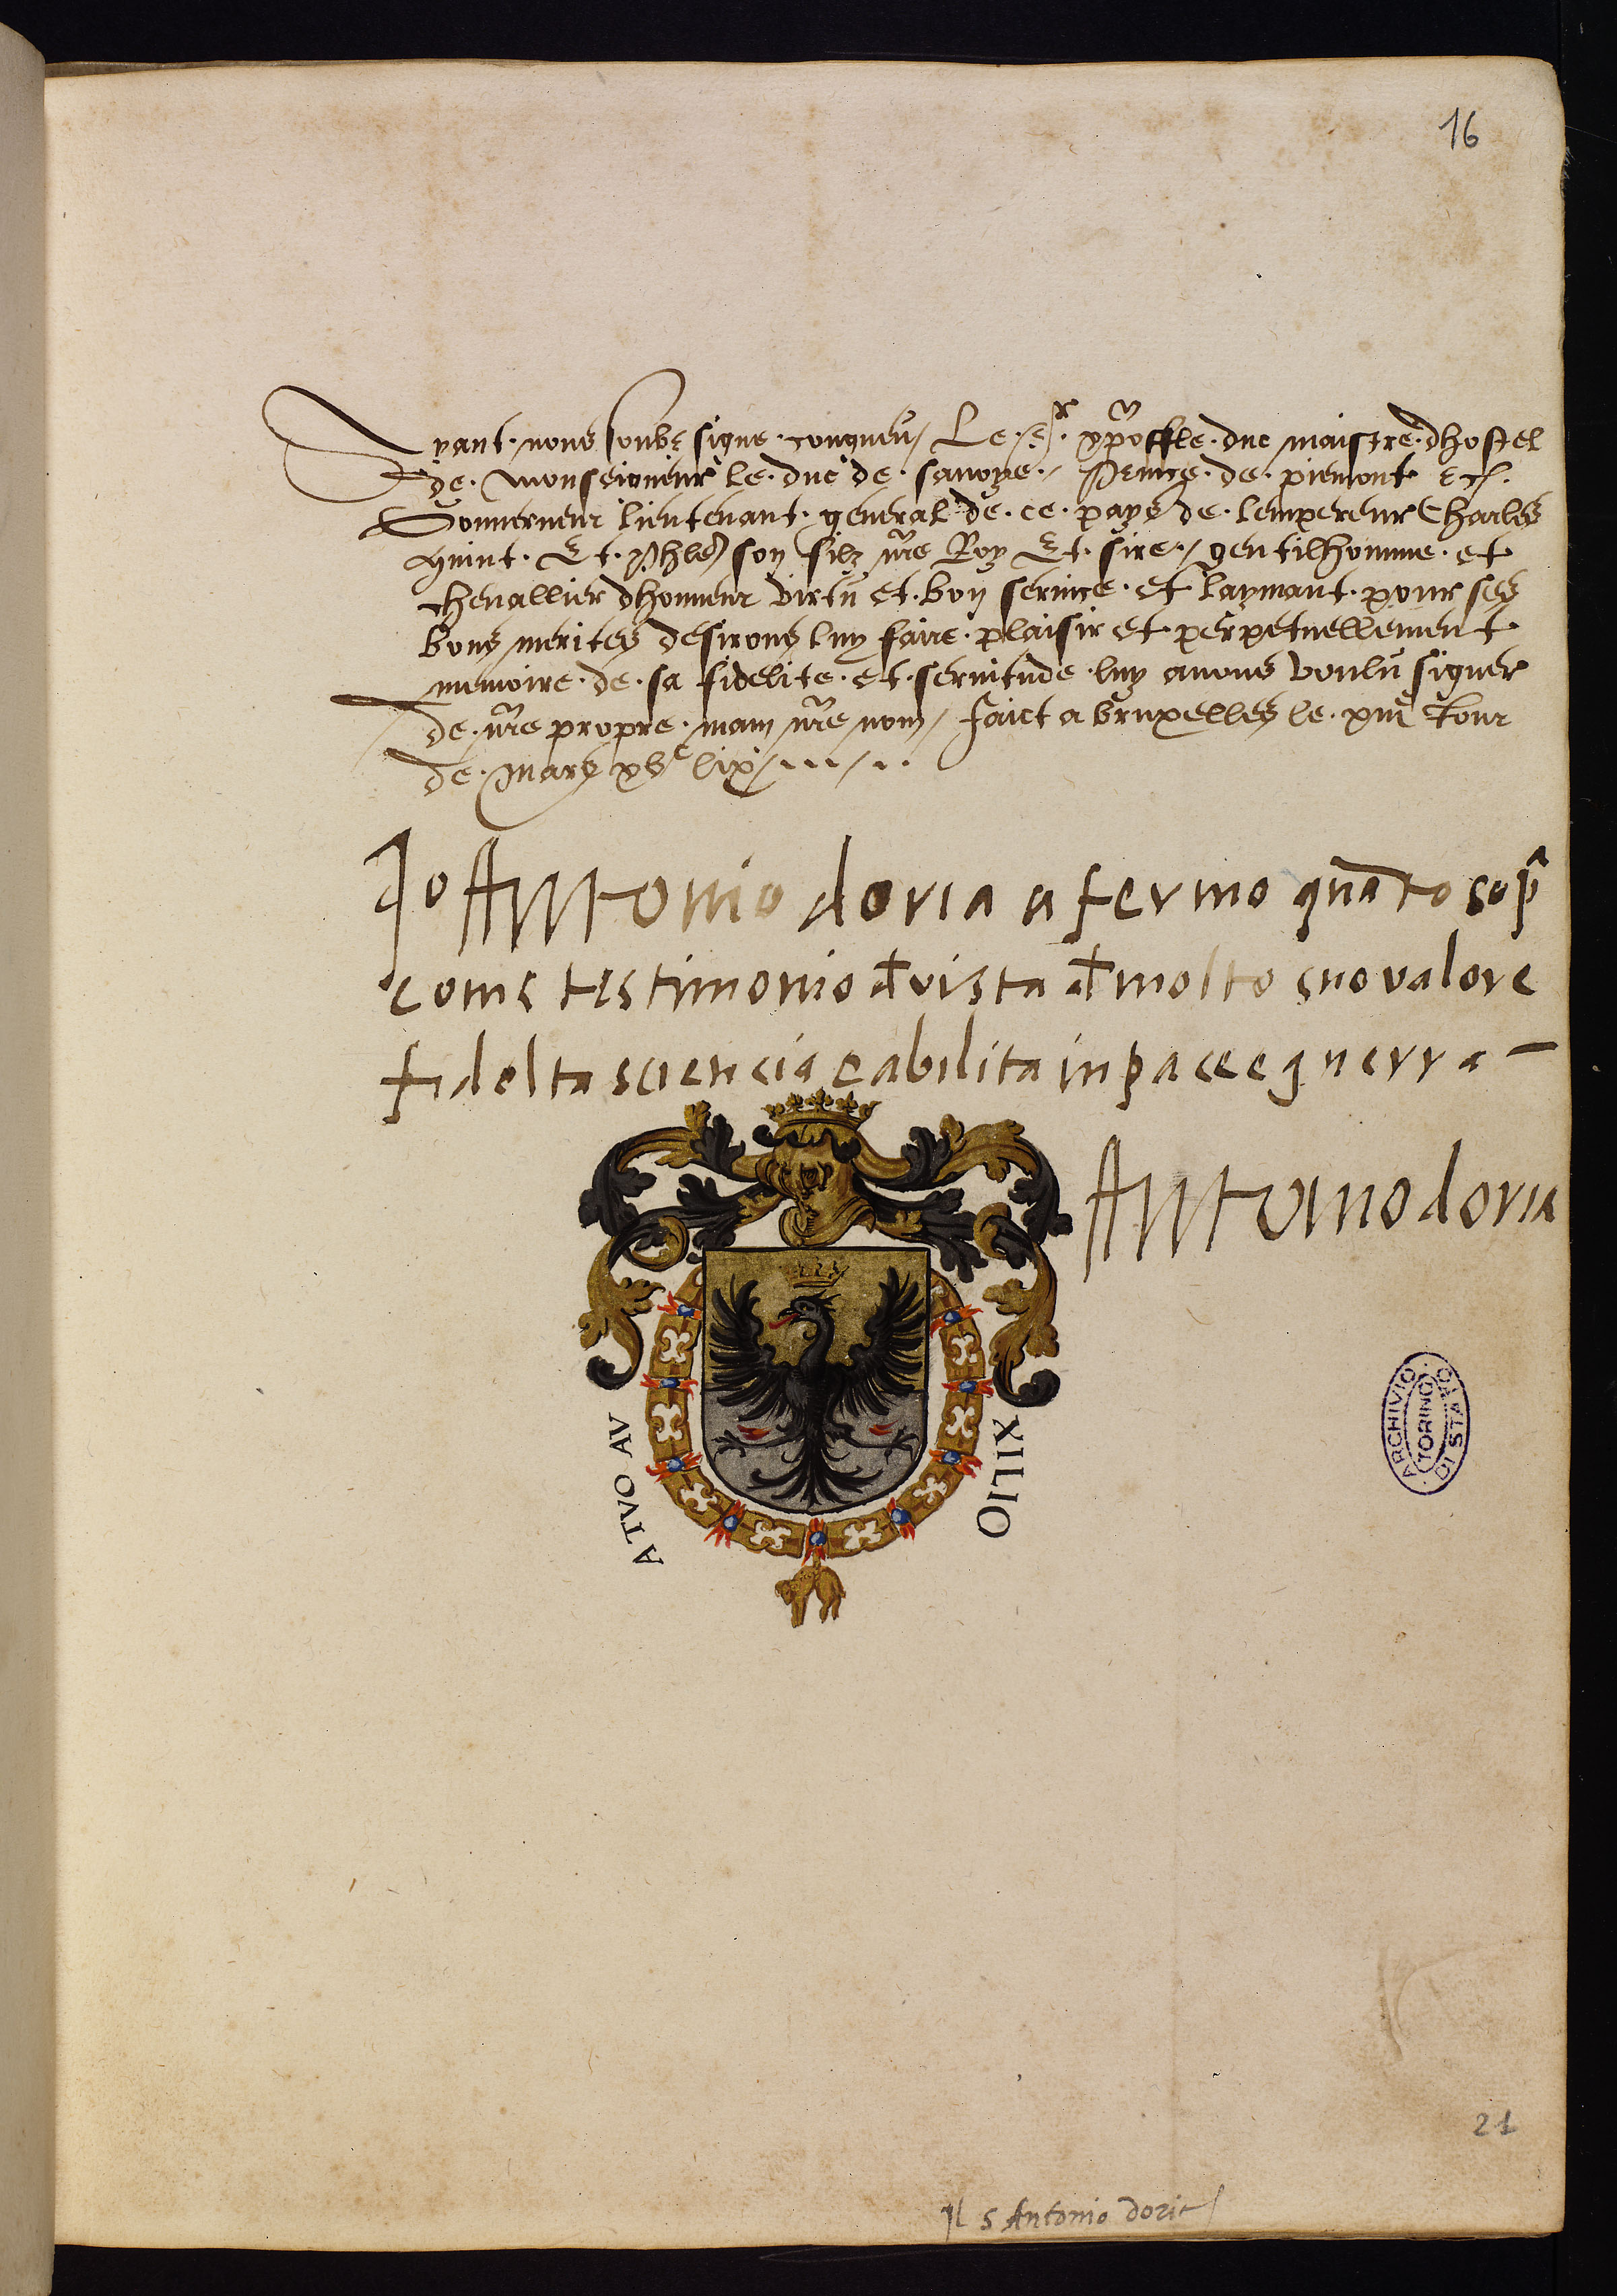 16
Ayant nous soubz signe congneu / Le Sr. xpoffle duc maistre dhostel
de Monseigneur le duc de savoye / Prince de piemont Etc.
Gouverneur lieutenant general de ce pays de lempereur Charles
Quint. Et Phles son filz nre Roy Et sire / gentilhomme et
chevallier dhonneur virtu et bon service et laymant pour ses
bons merites desirons luy faire plaisir et perpetuellement
memoire de sa fidelite et servitude luy avons voulu signer
de nre propre main nre nom / faict a bruxelles le Jour
de Mars xvc lix
Io Antonio doria afermo quāto sopa
come testimonio d vista d molto suo valore
fidelta sciencia e abilita in pace e guerra
Antonio doria
A TVO AV
XILIO
ARCHIVIO
TORINO
DI STATO
21
Il S Antonio doria